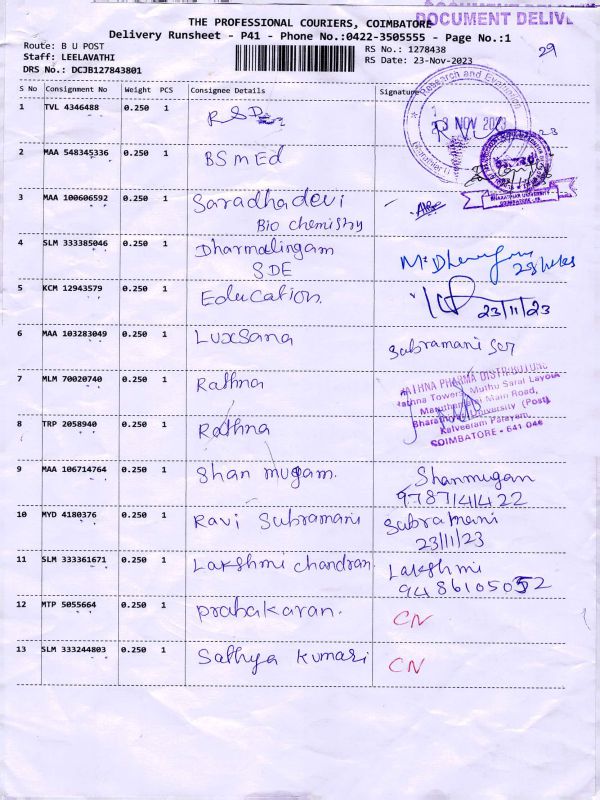 THE PROFESSIONAL COURIERS, COIMBATORE
DOCUMENT DELIV
Delivery Runsheet - P41 - Phone No.:0422-3505555 - Page No.:1
Route: B U POST
RS No.: 1278438
29
Staff: LEELAVATHI
RS Date: 23-Nov-2023
DRS No.: DCJB127843801
S No Consignment No Weight PCS Consignee Details Signature
1 TVL 4346488 0.250 1 RSD
Research and Evaluation
NOV 2023
2 MAA 548345336 0.250 1 BSMEd
BHARATHIAR UNIVERSITY
3 MAA 100606592 0.250 1 Saradhadevi
Bio chemistry
4 SLM 333385046 0.250 1 Dharmalingam
SDE
5 KCM 12943579 0.250 1 Education
23/11/23
6 MAA 103283049 0.250 1 Luxsana Subramani
7 MLM 70020740 0.250 1 Rathna
RATHNA PHARMA DISTRIBUTORS
Rathna Towers, Muthu Saral Layout
Maruthamalai Main Road,
Bharathiyar University (Post)
Kalveeram Palayam,
COIMBATORE - 641 046
8 TRP 2058940 0.250 1 Rathna
9 MAA 106714764 0.250 1 Shanmugam. Shanmugan
9787141422
10 MYD 4180376 0.250 1 Ravi Subramani Subramani
23/11/23
11 SLM 333361671 0.250 1 Lakshmi chandran Lakshmi
12 MTP 5055664 0.250 1 prabakaran. CN
13 SLM 333244803 0.250 1 Sathya Kumari CN